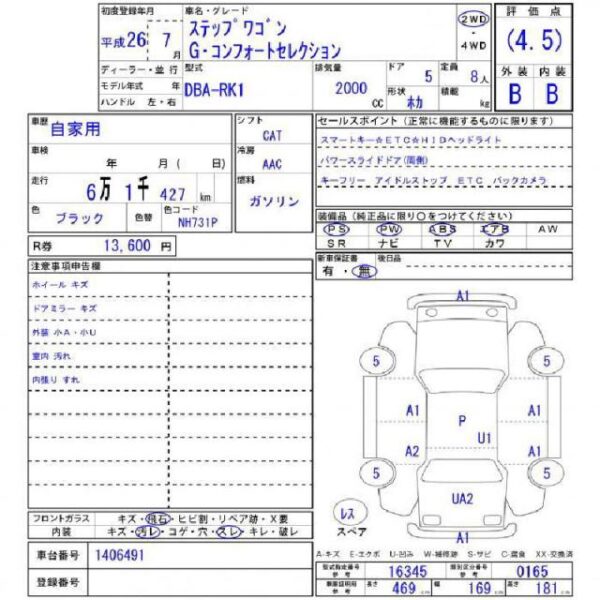 初度登録年月 車名・グレード 評価点
平成26 7月 ステップワゴン 2WD (4.5)
G・コンフォートセレクション ・ 4WD
ディーラー・並行 型式 排気量 ドア 5 定員 8人 外装 内装
モデル年式 年 DBA-RK1 2000 CC 形状 ホカ 積載 kg B B
ハンドル 左・右
車歴 自家用 シフト CAT セールスポイント(正常に機能するものに限ります)
車検 年 月 ( 日) 冷房 AAC スマートキー☆ETC☆HIDヘッドライト
パワースライドドア(両側)
走行 6万 1千 427 km 燃料 ガソリン キーフリー アイドルストップ ETC バックカメラ
色 ブラック 色替 色コード NH731P 装備品(純正品に限り○をつけてください)
PS PW ABS エアB AW
R券 13,600 円 SR ナビ TV カワ
注意事項申告欄 新車保証書 有・無 後日品
ホイール キズ
ドアミラー キズ
外装 小A・小U
室内 汚れ
内張り すれ
A1
5 5
A1 P A1
A2 U1 A1
5 5
UA2
レス スペア
A1
フロントガラス キズ・飛石・ヒビ割・リペア跡・X要
内装 キズ・汚レ・コゲ・穴・スレ・キレ・破レ
A-キズ E-エクボ U-凹み W-補修跡 S-サビ C-腐食 XX-交換済
車台番号 1406491 型式指定番号 参考 16345 類別区分番号 参考 0165
登録番号 車検証明用 参考 長さ 469 幅 169 高さ 181